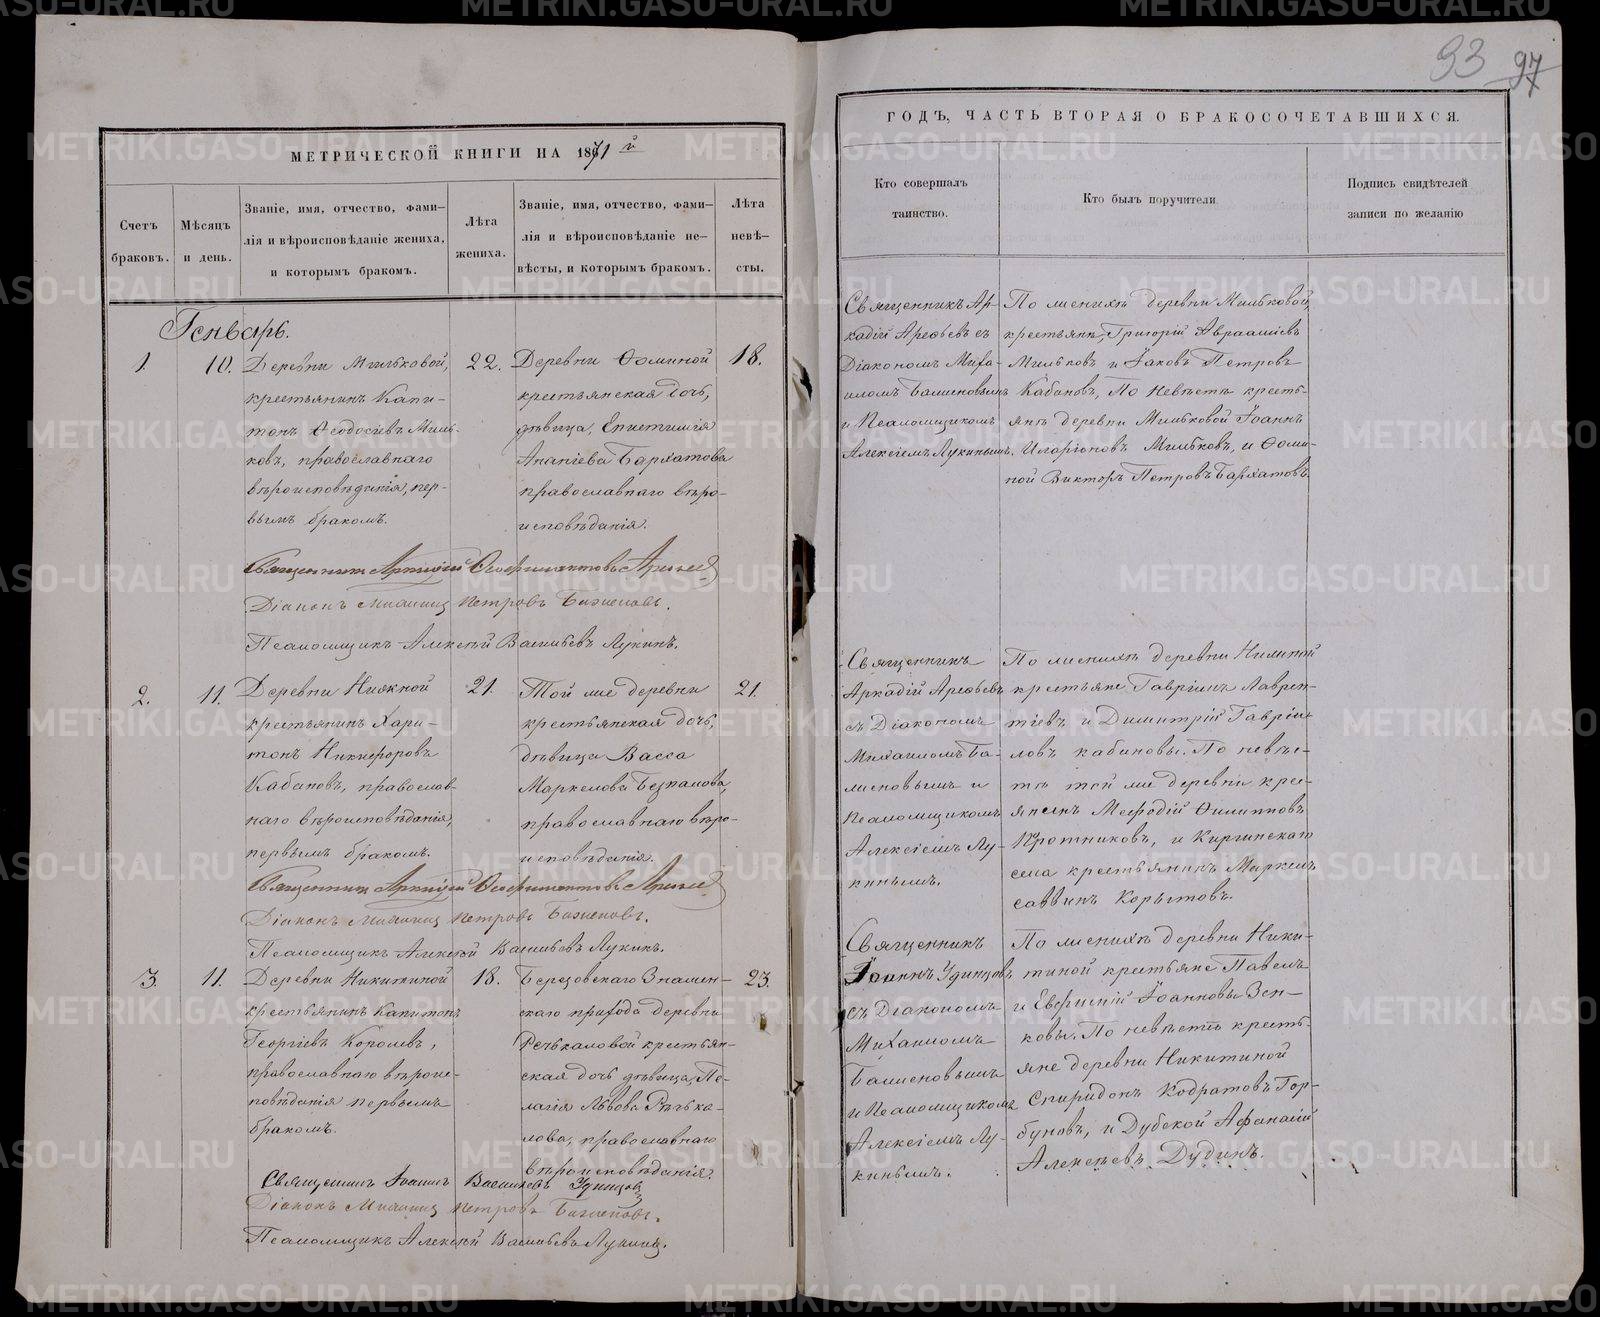 93 97
МЕТРИЧЕСКОЙ КНИГИ НА 1871й
Счетъ
браковъ.
Мѣсяцъ
и день.
Званіе, имя, отчество, фами-
лія и вѣроисповѣданіе жениха,
и которымъ бракомъ.
Лѣта
жениха.
Званіе, имя, отчество, фами-
лія и вѣроисповѣданіе не-
вѣсты, и которымъ бракомъ.
Лѣта
невѣ-
сты.
Генварь.
1.
10.
Деревни Мильковой,
крестьянинъ Капи-
тонъ Ѳеодосіевъ Миль-
ковъ, православнаго
вѣроисповѣданія, пер-
вымъ бракомъ.
22.
Деревни Ѳоминой
крестьянская дочь,
дѣвица, Епистимія
Ананіева Бархатова
православнаго вѣро-
исповѣданія.
18.
Священникъ Аркадій Ѳеофилактовъ Арефьев
Діаконъ Михаилъ Петровъ Баженовъ.
Псаломщикъ Алексѣй Васильевъ Лукинъ.
2.
11.
Деревни Нижной
крестьянинъ Хари-
тонъ Никифоровъ
Кабановъ, православ-
наго вѣроисповѣданія,
первымъ бракомъ.
21.
Той же деревни
крестьянская дочь,
дѣвица Васса
Маркелова Безпалова,
православнаго вѣро-
исповѣданія.
21.
Священникъ Аркадій Ѳеофилактовъ Арефьев
Діаконъ Михаилъ Петровъ Баженовъ.
Псаломщикъ Алексѣй Васильевъ Лукинъ.
3.
11.
Деревни Никитиной
крестьянинъ Капитонъ
Георгіевъ Королевъ,
православнаго вѣроис-
повѣданія первымъ
бракомъ.
18.
Березовскаго Знамен-
скаго прихода деревни
Речкаловой крестьян-
ская дочь дѣвица, Пе-
лагія Львова Рѣчка-
лова, православнаго
вѣроисповѣданія.
23.
Священникъ Іоаннъ Васильевъ Удинцовъ
Діаконъ Михаилъ Петровъ Баженовъ.
Псаломщикъ Алексѣй Васильевъ Лукинъ.
ГОДЪ, ЧАСТЬ ВТОРАЯ О БРАКОСОЧЕТАВШИХСЯ.
Кто совершалъ
таинство.
Кто былъ поручители
Подпись свидѣтелей
записи по желанію
Священникъ Ар-
кадій Арефьевъ съ
Діакономъ Миха-
иломъ Баженовымъ
и Псаломщикомъ
Алексіемъ Лукинымъ.
По женихѣ деревни Мильковой,
крестьяне, Григорій Авраамовъ
Мильковъ и Іаковъ Петровъ
Кабановъ, По невѣстѣ кресть-
янѣ деревни Мильковой Іоаннъ
Иларіоновъ Мильковъ, и Ѳоми-
ной Викторъ Петровъ Бархатовъ.
Священникъ
Аркадій Арефьевъ
съ Діакономъ
Михаиломъ Ба-
женовымъ и
Псаломщикомъ
Алексіемъ Лу-
кинымъ.
По женихѣ деревни Нижной
крестьяне Гавріилъ Лаврен-
тіевъ и Димитрій Гавріи-
ловъ Кабановы. По невѣс-
тѣ той же деревни крес-
янинъ Меѳодій Филипповъ
Кротниковъ, и Киргинскаго
села крестьянинъ Маркелъ
Саввинъ Корытовъ.
Священникъ
Іоаннъ Удинцовъ
съ Діакономъ
Михаиломъ
Баженовымъ
и Псаломщикомъ
Алексіемъ Лу-
кинымъ.
По женихѣ деревни Ники-
тиной крестьяне Павелъ
и Евфимій Іоанновы Зен-
ковы. По невѣстѣ кресть-
яне деревни Никитиной
Спиридонъ Кодратовъ Гор-
буновъ, и Дубской Афанасій
Алексѣевъ Дудинъ.